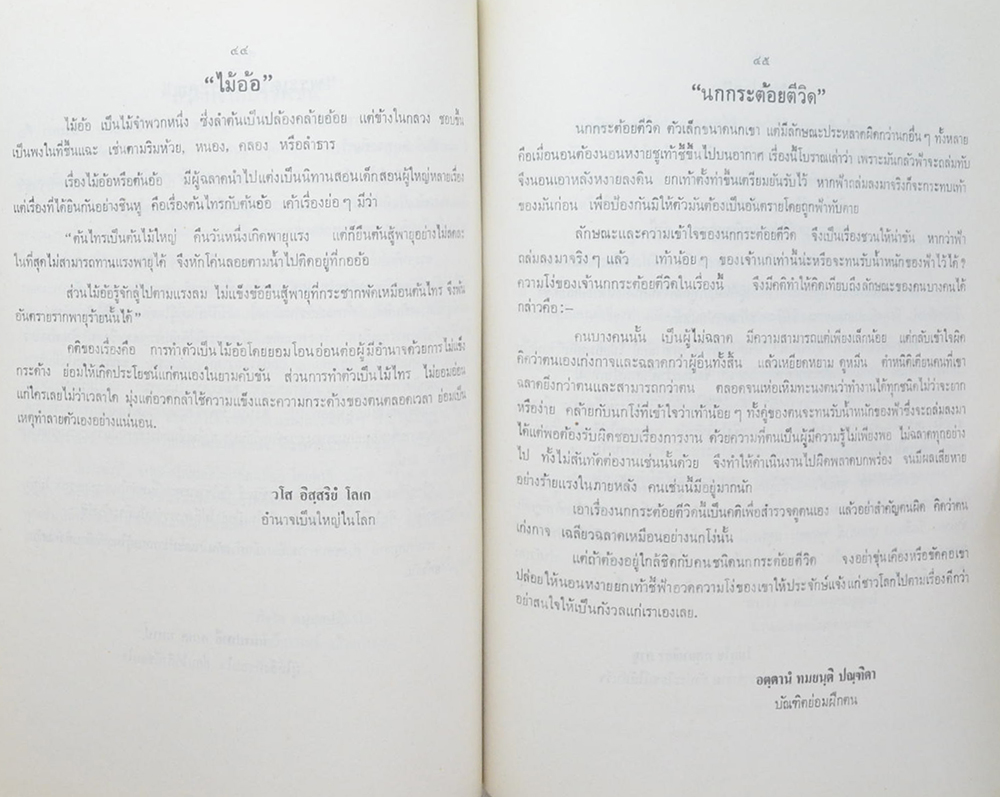 ๔๔
“ไม้อ้อ”
ไม้อ้อ เป็นไม้จำพวกหนึ่ง ซึ่งลำต้นเป็นปล้องคล้ายอ้อย แต่ข้างในกลวง ชอบขึ้น
เป็นพงในที่ชื้นแฉะ เช่นตามริมห้วย, หนอง, คลอง หรือลำธาร
เรื่องไม้อ้อหรือต้นอ้อ มีผู้ฉลาดนำไปแต่งเป็นนิทานสอนเด็กสอนผู้ใหญ่หลายเรื่อง
แต่เรื่องที่ได้ยินกันอย่างชินหู คือเรื่องต้นไทรกับต้นอ้อ เค้าเรื่องย่อๆ มีว่า
“ต้นไทรเป็นต้นไม้ใหญ่ คืนวันหนึ่งเกิดพายุแรง แต่ก็ยืนต้นสู้พายุอย่างไม่ลดละ
ในที่สุดไม่สามารถทานแรงพายุได้ จึงหักโค่นลอยตามน้ำไปติดอยู่ที่กออ้อ
ส่วนไม้อ้อรู้จักลู่ไปตามแรงลม ไม่แข็งข้อยืนสู้พายุที่กระชากพัดเหมือนต้นไทร จึงพ้น
อันตรายจากพายุร้ายนั้นได้”
คติของเรื่องคือ การทำตัวเป็นไม้อ้อโดยยอมโอนอ่อนต่อผู้มีอำนาจด้วยการไม่แข็ง
กระด้าง ย่อมให้เกิดประโยชน์แก่ตนเองในยามคับขัน ส่วนการทำตัวเป็นไม้ไทร ไม่ยอมอ่อน
แก่ใครเลยไม่ว่าเวลาใด มุ่งแต่อวดกล้าใช้ความแข็งและความกระด้างของตนตลอดเวลา ย่อมเป็น
เหตุทำลายตัวเองอย่างแน่นอน.
วโส อิสฺสริยํ โลเก
อำนาจเป็นใหญ่ในโลก
๔๕
“นกกระต้อยตีวิด”
นกกระต้อยตีวิด ตัวเล็กขนาดนกเขา แต่มีลักษณะประหลาดผิดกว่านกอื่นๆ ทั้งหลาย
คือเมื่อนอนต้องนอนหงายชูเท้าชี้ขึ้นไปบนอากาศ เรื่องนี้โบราณเล่าว่า เพราะมันกลัวฟ้าจะถล่มทับ
จึงนอนเอาหลังหงายลงดิน ยกเท้าตั้งท่าขึ้นเตรียมยันรับไว้ หากฟ้าถล่มลงมาจริงก็จะกระทบเท้า
ของมันก่อน เพื่อป้องกันมิให้ตัวมันต้องเป็นอันตรายโดยถูกฟ้าทับตาย
ลักษณะและความเข้าใจของนกกระต้อยตีวิด จึงเป็นเรื่องชวนให้น่าขัน หากว่าฟ้า
ถล่มลงมาจริงๆ แล้ว เท้าน้อยๆ ของเจ้านกเท่านั้นน่ะหรือจะทนรับน้ำหนักของฟ้าไว้ได้?
ความโง่ของเจ้านกกระต้อยตีวิดในเรื่องนี้ จึงมีคติทำให้คิดเทียบถึงลักษณะของคนบางคนได้
กล่าวคือ:–
คนบางคนนั้น เป็นผู้ไม่ฉลาด มีความสามารถแต่เพียงเล็กน้อย แต่กลับเข้าใจผิด
คิดว่าตนเองเก่งกาจและฉลาดกว่าผู้อื่นทั้งสิ้น แล้วเหยียดหยาม ดูหมิ่น ตำหนิติเตียนคนที่เขา
ฉลาดยิ่งกว่าตนและสามารถกว่าตน ตลอดจนเห่อเหิมทะนงตนว่าทำงานได้ทุกชนิดไม่ว่าจะยาก
หรือง่าย คล้ายกับนกโง่ที่เข้าใจว่าเท้าน้อยๆ ทั้งคู่ของตนจะทนรับน้ำหนักของฟ้าซึ่งจะถล่มลงมา
ได้แต่พอต้องรับผิดชอบเรื่องการงาน ด้วยความที่ตนเป็นผู้มีความรู้ไม่เพียงพอ ไม่ฉลาดทุกอย่าง
ไป ทั้งไม่สันทัดต่องานเช่นนั้นด้วย จึงทำให้ดำเนินงานไปผิดพลาดบกพร่อง จนมีผลเสียหาย
อย่างร้ายแรงในภายหลัง คนเช่นนี้มีอยู่มากนัก
เอาเรื่องนกกระต้อยตีวิดนี้เป็นคติเพื่อสำรวจดูตนเอง แล้วอย่าสำคัญตนผิด คิดว่าตน
เก่งกาจ เฉลียวฉลาดเหมือนอย่างนกโง่นั้น
แต่ถ้าต้องอยู่ใกล้ชิดกับคนชนิดนกกระต้อยตีวิด จงอย่าขุ่นเคืองหรือขัดคอเขา
ปล่อยให้นอนหงายยกเท้าชี้ฟ้าอวดความโง่ของเขาให้ประจักษ์แจ้งแก่ชาวโลกไปตามเรื่องดีกว่า
อย่าสนใจให้เป็นกังวลแก่เราเองเลย.
อตฺตานํ ทมยนฺติ ปณฺฑิตา
บัณฑิตย่อมฝึกตน